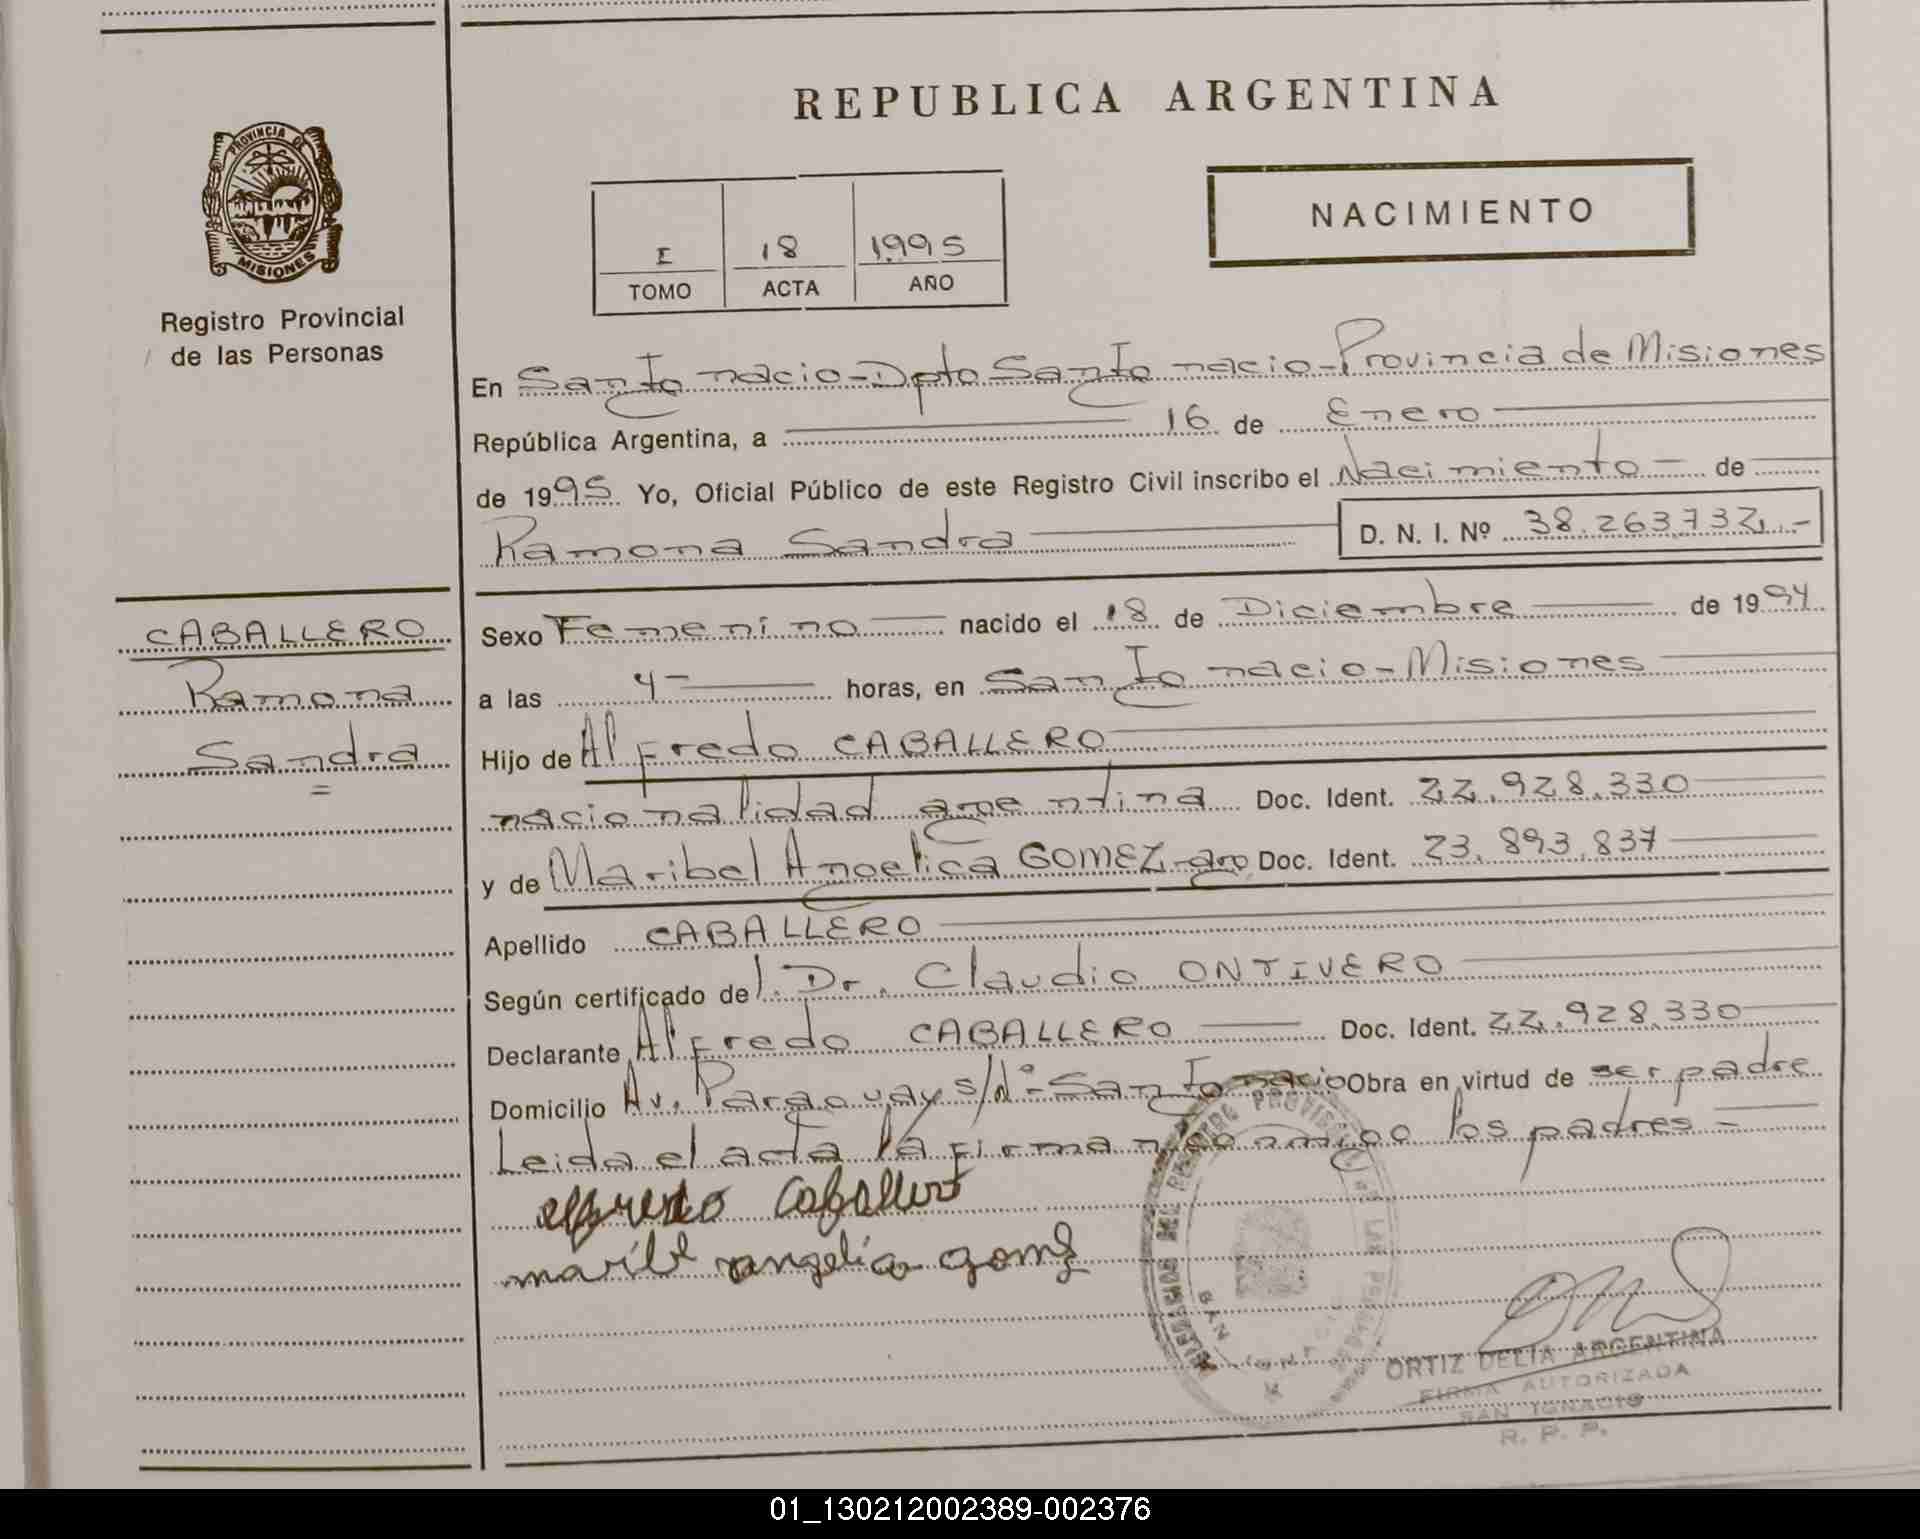 REPUBLICA ARGENTINA
PROVINCIA DE
MISIONES
Registro Provincial
de las Personas
I 18 1995
TOMO ACTA AÑO
NACIMIENTO
En San Ignacio - Dpto San Ignacio - Provincia de Misiones
República Argentina, a 16 de Enero
de 1995 Yo, Oficial Público de este Registro Civil inscribo el Nacimiento - de
Ramona Sandra D. N. I. Nº 38.263.732.-
CABALLERO
Ramona
Sandra
=
Sexo Femenino nacido el 18 de Diciembre de 1994
a las 4 - horas, en San Ignacio - Misiones
Hijo de Alfredo CABALLERO
nacionalidad argentina Doc. Ident. 22.928.330
y de Maribel Angelica GOMEZ - arg Doc. Ident. 23.893.837
Apellido CABALLERO
Según certificado del Dr. Claudio ONTIVERO
Declarante Alfredo CABALLERO Doc. Ident. 22.928.330
Domicilio Av. Paraguay s/nº - San Ignacio Obra en virtud de ser padre
Leida el acta la firman conmigo los padres =
alfredo Caballero
maribel angelica gomez
SAN IGNACIO
ORTIZ DELIA ARGENTINA
FIRMA AUTORIZADA
SAN IGNACIO
R. P. P.
01_130212002389-002376